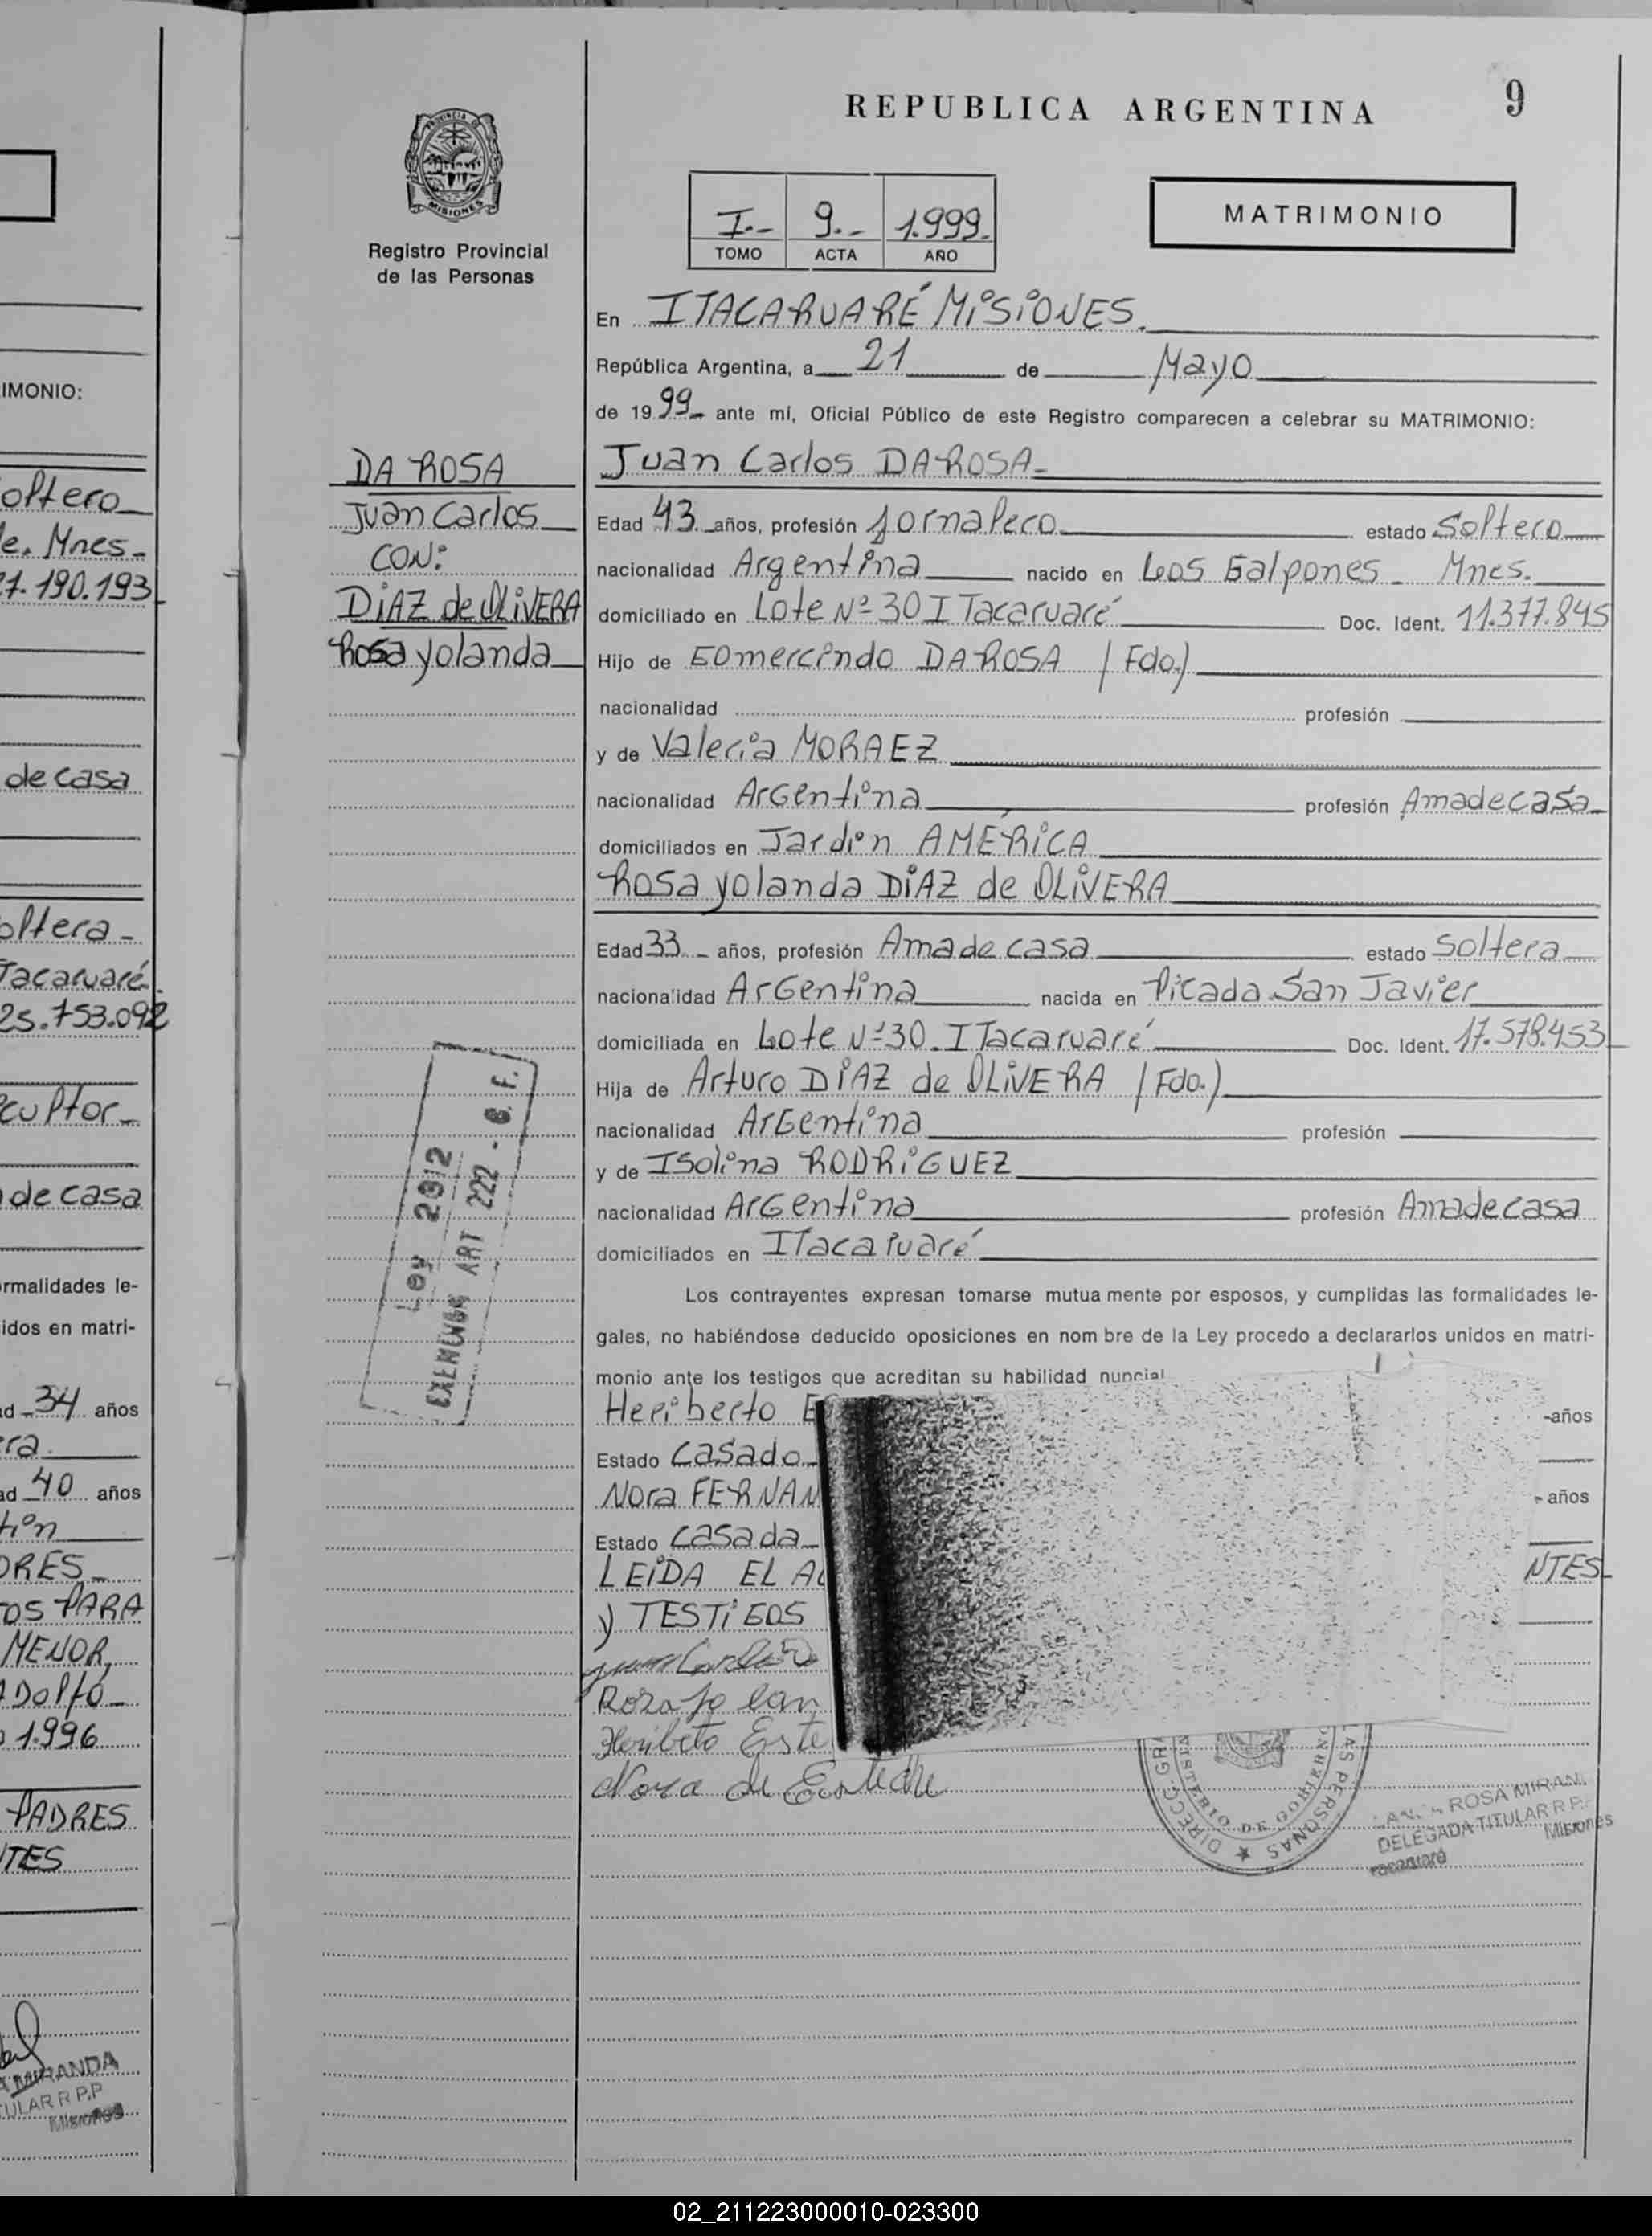 IMONIO:
oltero
e. Mnes.
27.190.193
de casa
oltera
Tacaruaré
25.753.092
cultor
de casa
ormalidades le-
idos en matri-
ad 34 años
ra
ad 40 años
ORES
TOS PARA
MENOR,
ADolfo
1.996
PADRES
TES
MIRANDA
TULAR R P.P
Misiones
PROVINCIA DE
MISIONES
Registro Provincial
de las Personas
DA ROSA
Juan Carlos
CON:
DÍAZ de OLIVERA
Rosa yolanda
Ley 2912
EXENCION ART 222 - C.F.
REPUBLICA ARGENTINA 9
I.- 9.- 1.999.
TOMO ACTA AÑO
MATRIMONIO
En ITACARUARÉ MISIONES.
República Argentina, a 21 de Mayo
de 19 99 ante mí, Oficial Público de este Registro comparecen a celebrar su MATRIMONIO:
Juan Carlos DA ROSA
Edad 43 años, profesión Jornalero estado Soltero
nacionalidad Argentina nacido en Los Galpones Mnes.
domiciliado en Lote Nº 30 ITacaruaré Doc. Ident. 11.377.845
Hijo de Eomercindo DA ROSA (Fdo.)
nacionalidad profesión
y de Valeria MORAEZ
nacionalidad Argentina profesión Ama de casa
domiciliados en Jardin AMÉRICA
Rosa yolanda DÍAZ de OLIVERA
Edad 33 años, profesión Ama de casa estado Soltera
nacionalidad Argentina nacida en Picada San Javier
domiciliada en Lote Nº 30 ITacaruaré Doc. Ident. 17.578.453
Hija de Arturo DÍAZ de OLIVERA (Fdo.)
nacionalidad Argentina profesión
y de Isolina RODRIGUEZ
nacionalidad Argentina profesión Ama de casa
domiciliados en ITacaruaré
Los contrayentes expresan tomarse mutua mente por esposos, y cumplidas las formalidades le-
gales, no habiéndose deducido oposiciones en nom bre de la Ley procedo a declararlos unidos en matri-
monio ante los testigos que acreditan su habilidad nupcial
Heriberto E años
Estado Casado
Nora FERNAN años
Estado Casada
LEIDA EL AC NTES
y TESTIGOS
Juan Carlos
Rosa yolan
Heriberto Este
Nora de Esteche
DIRECC. GRA AS PERSONAS
MINISTERIO DE GOBIERNO
ROSA MIRAN
DELEGADA TITULAR R P.
Misiones
02_211223000010-023300